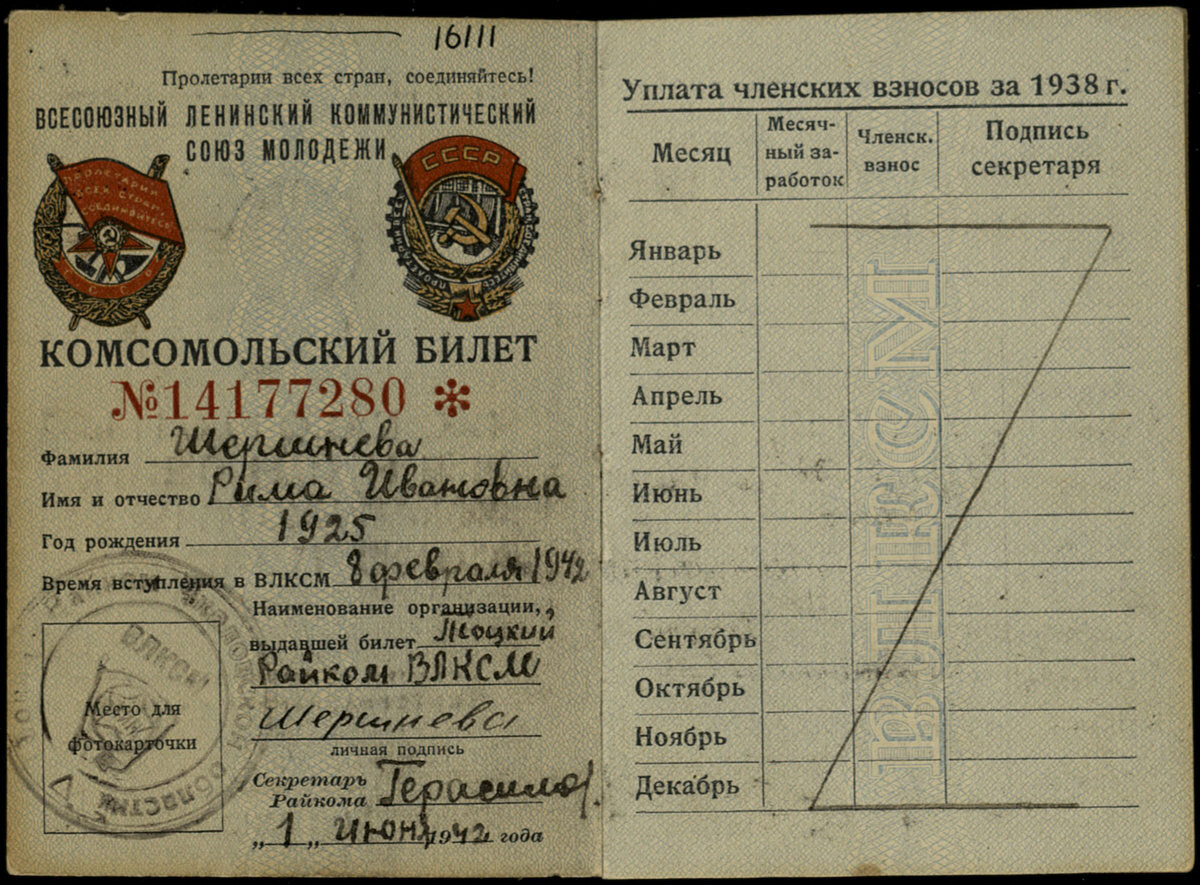 16111
Пролетарии всех стран, соединяйтесь!
ВСЕСОЮЗНЫЙ ЛЕНИНСКИЙ КОММУНИСТИЧЕСКИЙ
СОЮЗ МОЛОДЕЖИ
ПРОЛЕТАРИИ
ВСЕХ СТРАН
СОЕДИНЯЙТЕСЬ
СССР
СССР
КОМСОМОЛЬСКИЙ БИЛЕТ
№14177280 *
Фамилия Шершнева
Имя и отчество Рима Ивановна
Год рождения 1925
Время вступления в ВЛКСМ 8 февраля 1942
Наименование организации,
выдавшей билет Тоцкий
Райком ВЛКСМ
Шершнева
личная подпись
Место для
фотокарточки
ВЛКСМ
ОБЛАСТИ
Секретарь
Райкома Герасимов
„1„ июня 1942 года
Уплата членских взносов за 1938 г.
Месяц
Месяч-
ный за-
работок
Членск.
взнос
Подпись
секретаря
Январь
Февраль
Март
Апрель
Май
Июнь
Июль
Август
Сентябрь
Октябрь
Ноябрь
Декабрь
ВЛКСМ